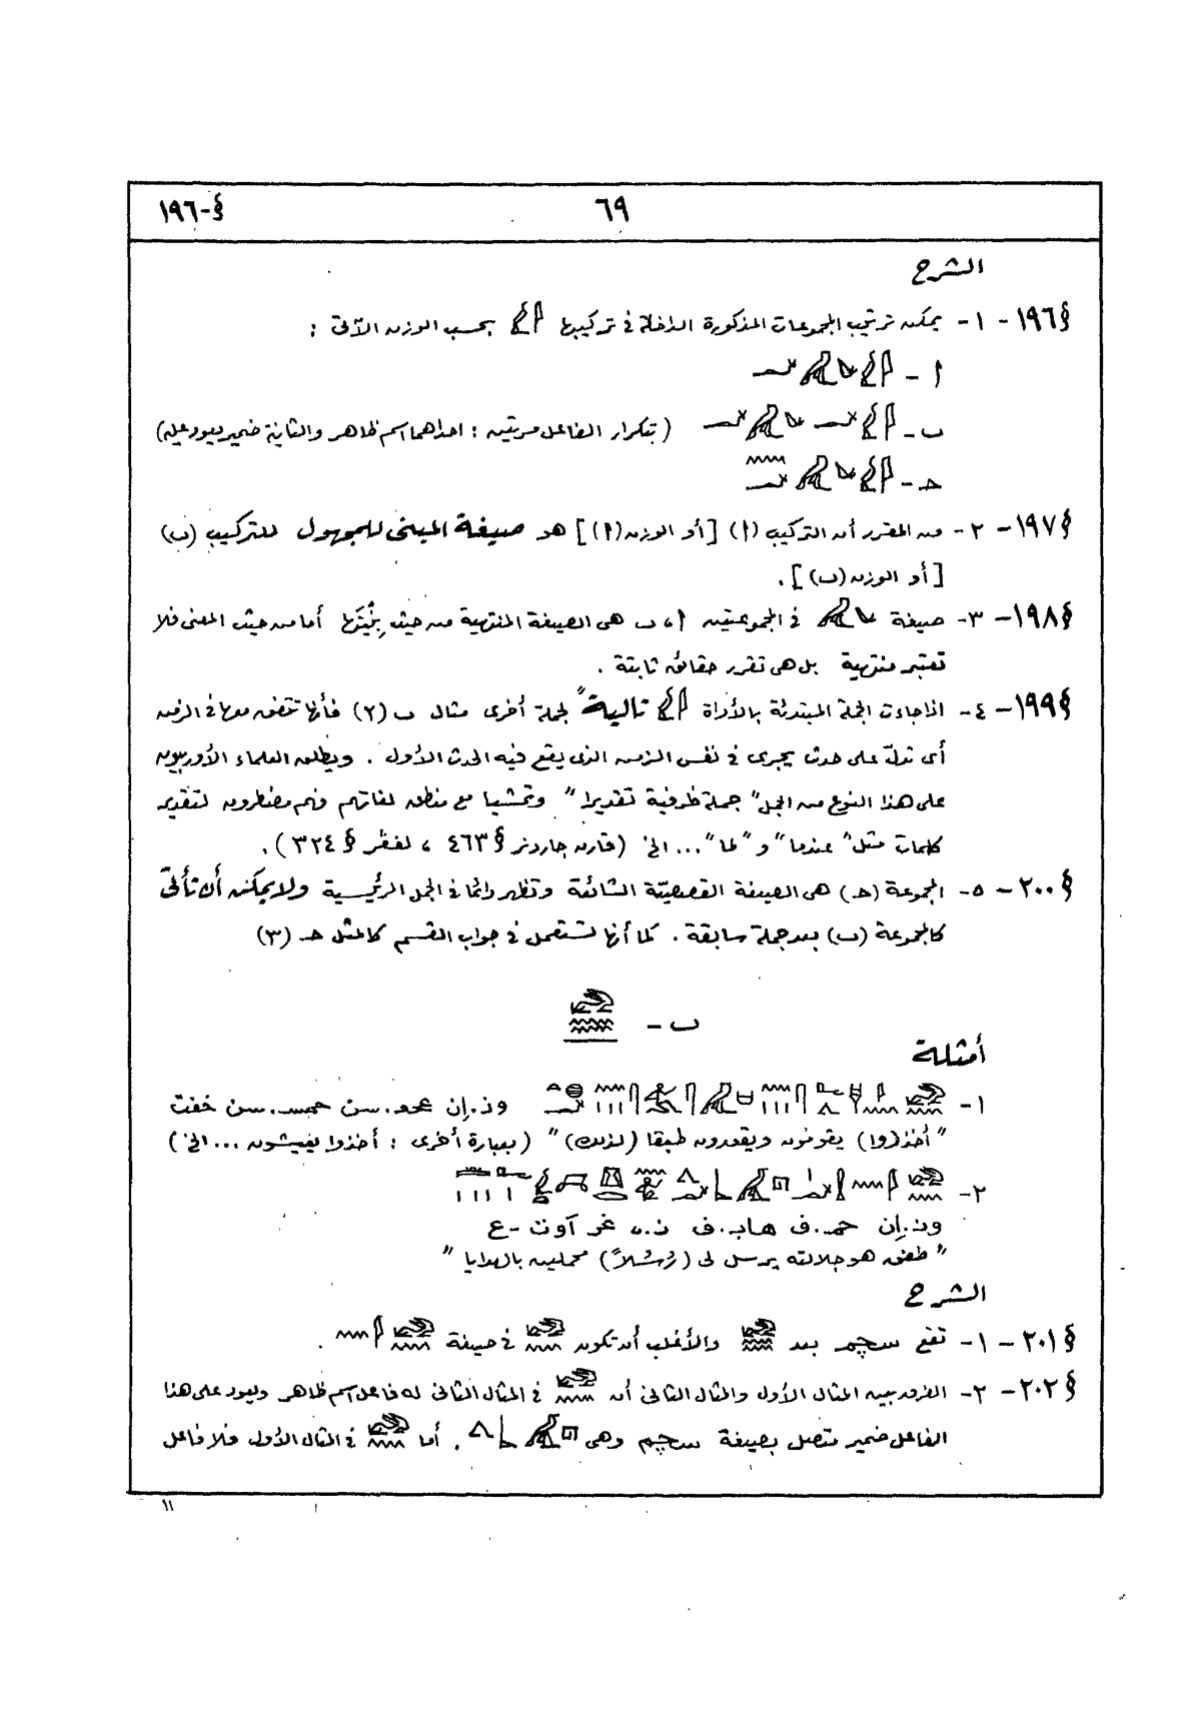 §-١٩٦
٦٩
الشرح
§١٩٦ - ١- يمكن ترتيب المجموعات المذكورة الداخلة في تركيبها 𓊢 بحسب الوزن الآتى :
ا -
ب - (بتكرار الفاعل مرتين : احداهما اسم ظاهر والثانية ضمير يعود عليه)
حـ -
§١٩٧ - ٢- من المقرر أن التركيب (ا) [أو الوزن (ا)] هو صيغة المبنى للمجهول للتركيب (ب)
[أو الوزن (ب)].
§١٩٨ - ٣- صيغة في المجموعتين ا، ب هى الصيغة المنتهية من حيث بِنْيَتها أما من حيث المعنى فلا
تعتبر منتهية بل هى تقرر حقائق ثابتة .
§١٩٩ - ٤- اذا جاءت الجملة المبتدئة بالأداة "تالية" لجملة أخرى مثال ب (٢) فأنها تتفق معها في الزمن
أى تدلّ على حدث يجرى في نفس الزمن الذى يقع فيه الحدث الأول . ويطلق العلماء الأوربيون
على هذا النوع من الجمل "جملة ظرفية تقديرا" وتمشيا مع منطق لغاتهم فهم مضطرون لتقدير
كلمات مثل "عندما" و "لما" ... الخ (قارن جاردنر § ٤٦٣ ، لفڤر § ٣٢٤).
§٢٠٠ - ٥- المجموعة (حـ) هى الصيغة القصصيّة الشائعة وتظهر دائما في الجمل الرئيسية ولا يمكن أن تأتىَ
كالمجموعة (ب) بعد جملة سابقة . كما أنها تستعمل في جواب القسم كالمثل حـ (٣)
ب -
أمثلة
١- ون.إن عحع.سن حمس.سن خفت
"أخذ(وا) يقومون ويقعدون طبقا (لذلك)" (بعبارة أخرى : أخذوا يعيشون ... الخ)
٢-
ون.إن حم.ف هاب.ف ن.ى غر آوت -ع
"طفق هو جلالته يرسل لى (رُسُلاً) محملين بالهدايا"
الشرح
§٢٠١ - ١- تقع سچم بعد والأغلب أن تكون في صيغة .
§٢٠٢ - ٢- الفرق بين المثال الأول والمثال الثانى أن في المثال الثانى له فاعل اسم ظاهر ويعود على هذا
الفاعل ضمير متصل بصيغة سچم وهى . أما في المثال الأول فلا فاعل
١١